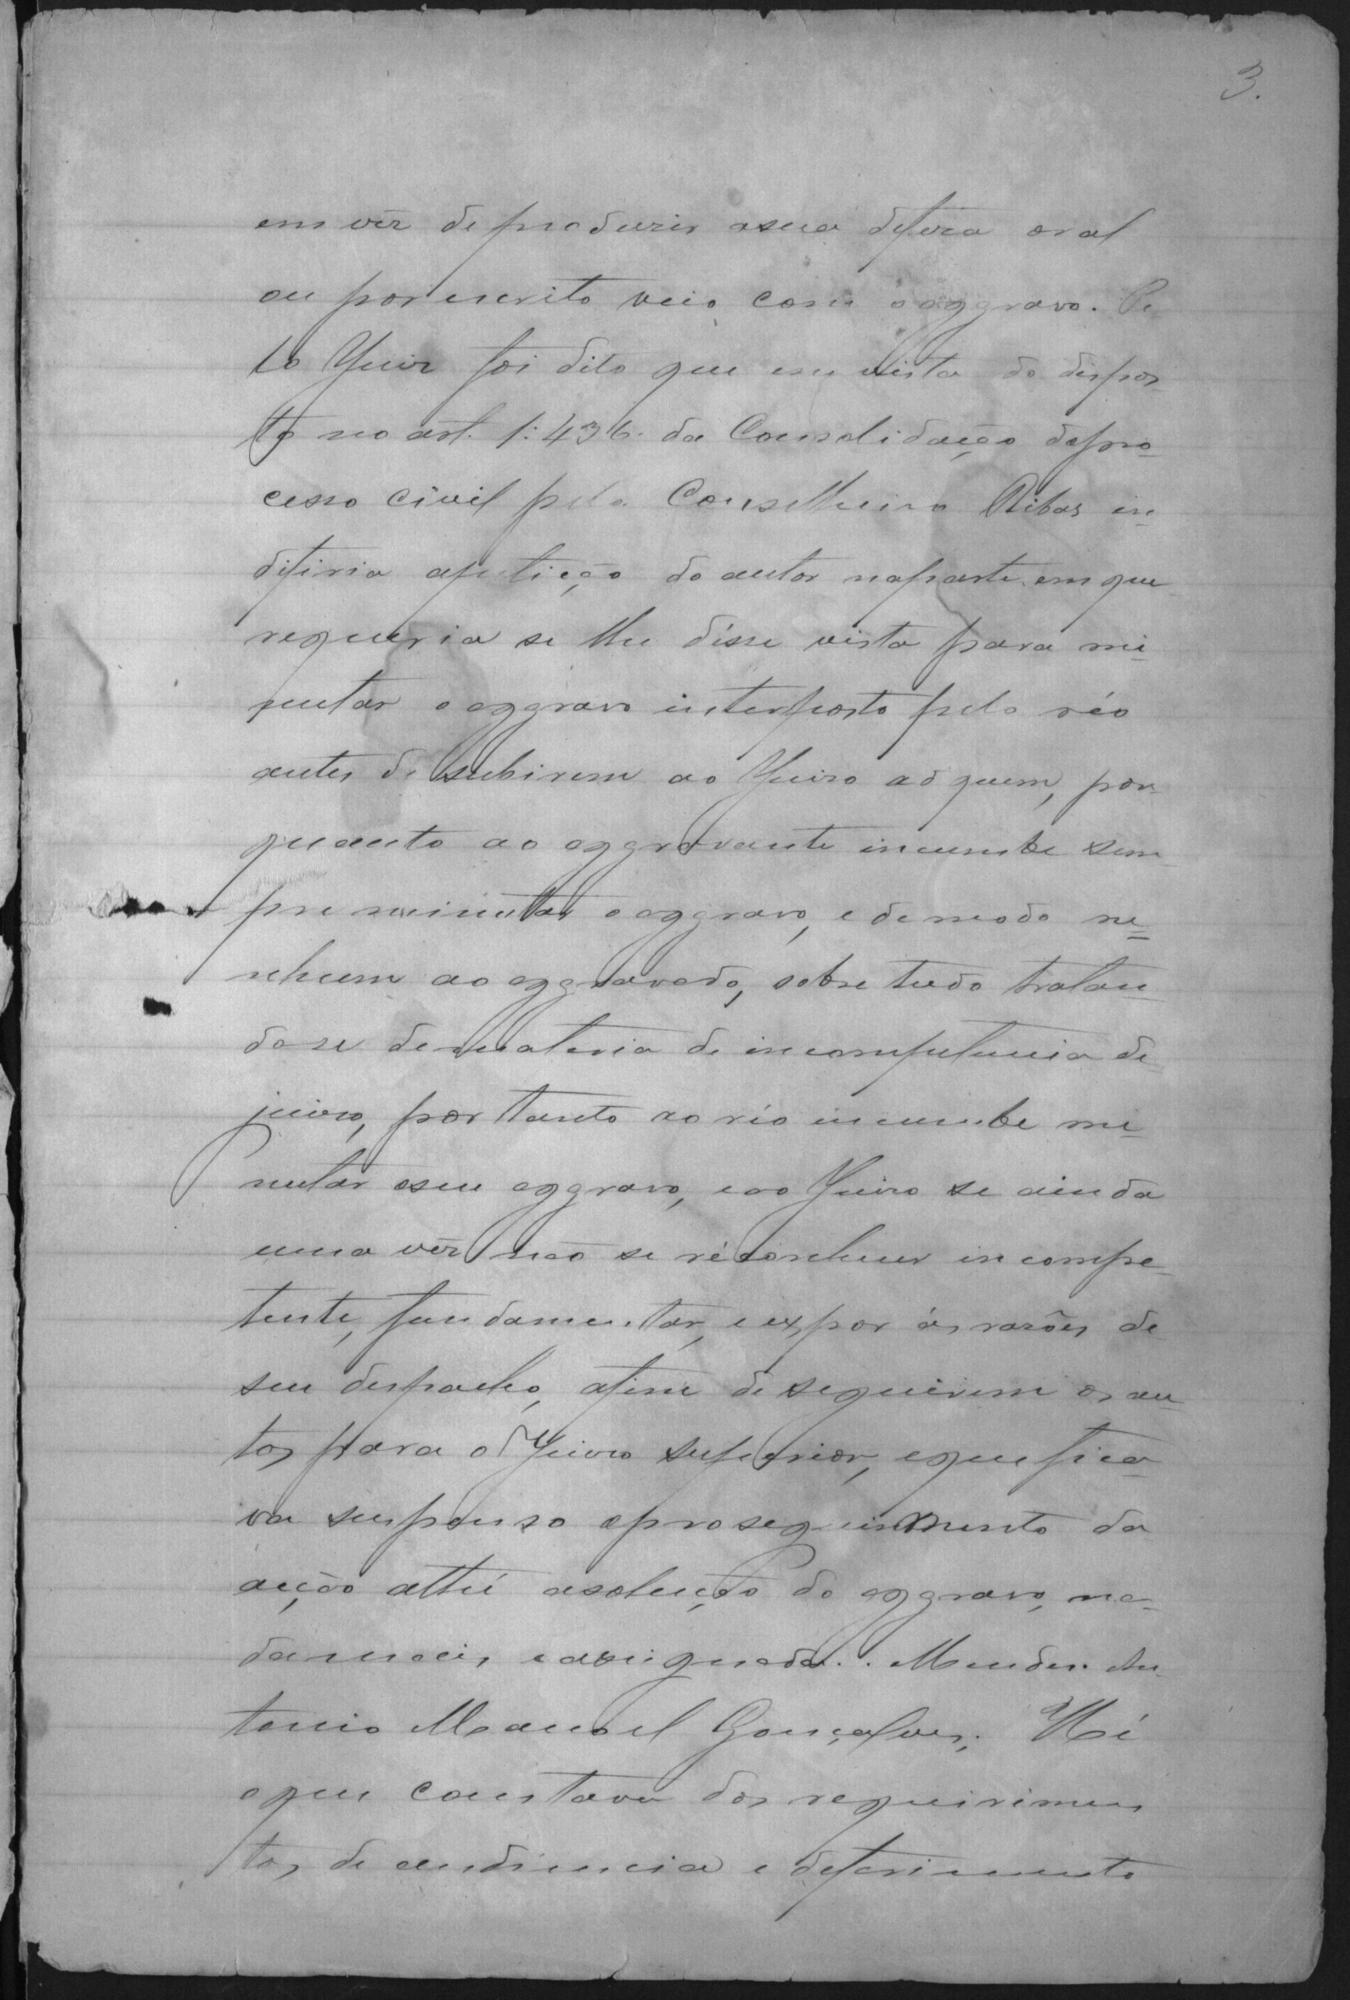 3.
em vêz de produzir a sua defeza oral
ou por escrito veio com o aggravo. Pe
lo Juiz foi dito que em vista do dispos
to no art. 1:436. da Consolidação do pro-
cesso civil pelo Conselheiro Ribas in-
diferia a petição do autor na parte em que
requeria se lhe désse vista para mi-
nutar o aggravo interposto pelo réo
antes de subirem ao Juizo ad quem, por
quanto ao aggravante incumbe sem
pre minutar o aggravo, e de modo ne=
nhum ao aggravado, sobre tudo tratan-
do se de materia de incompetencia de
juizo, portanto ao réo incumbe mi-
nutar o seu aggravo, e ao Juizo se ainda
uma vêz não se reconhecer incompe-
tente, fundamentar, e expor ás razões de
seu despacho, afim de seguirem os au-
tos para o Juizo superior, e que fica-
va suspenso o proseguimento da
acção athé a solução do aggravo, na-
da mais, e assignada. Mendes. An-
tonio Manoel Gonçalves. Hé
o que constava dos requirimen
tos de audiencia e deferimento